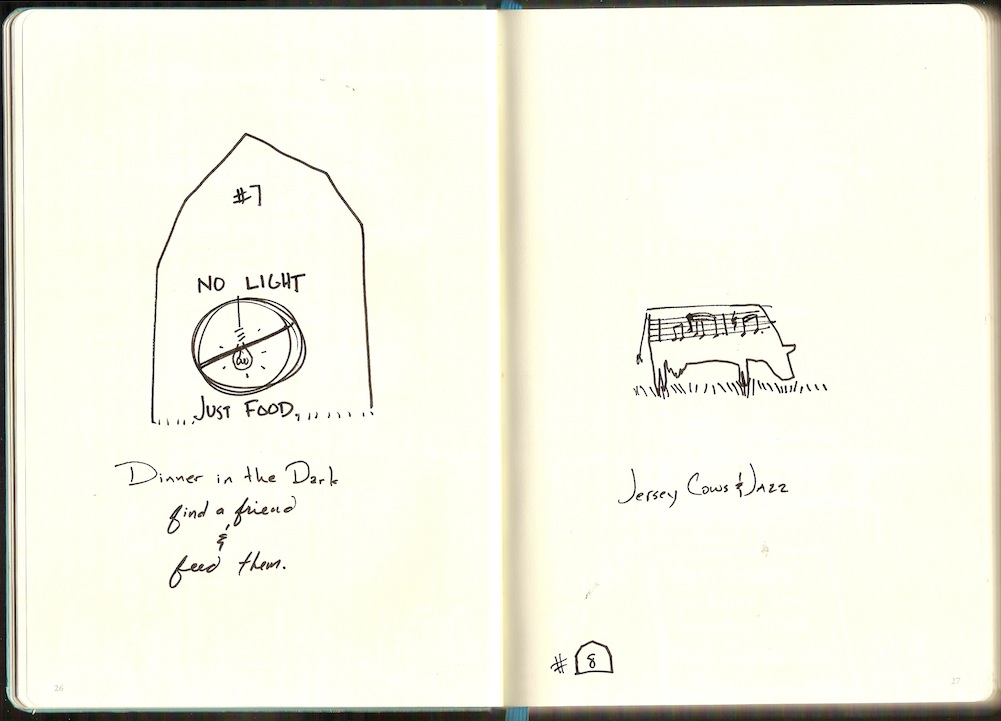 #7
NO LIGHT
JUST FOOD
Dinner in the Dark
find a friend
&
feed them.
26
Jersey Cows & Jazz
# 8
27